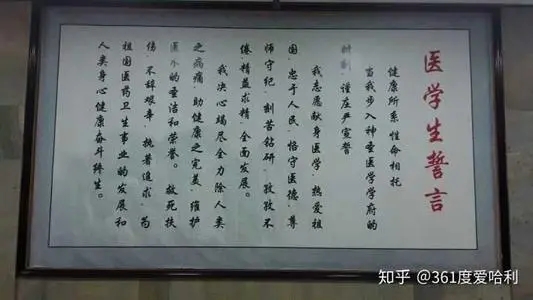 医学生誓言
健康所系 性命相托
当我步入神圣医学学府的
时刻·谨庄严宣誓
我志愿献身医学·热爱祖
国·忠于人民·恪守医德·尊
师守纪·刻苦钻研·孜孜不
倦·精益求精·全面发展。
我决心竭尽全力除人类
之病痛·助健康之完美·维护
医术的圣洁和荣誉。救死扶
伤·不辞艰辛·执著追求·为
祖国医药卫生事业的发展和
人类身心健康奋斗终生。
知乎 @361度爱哈利